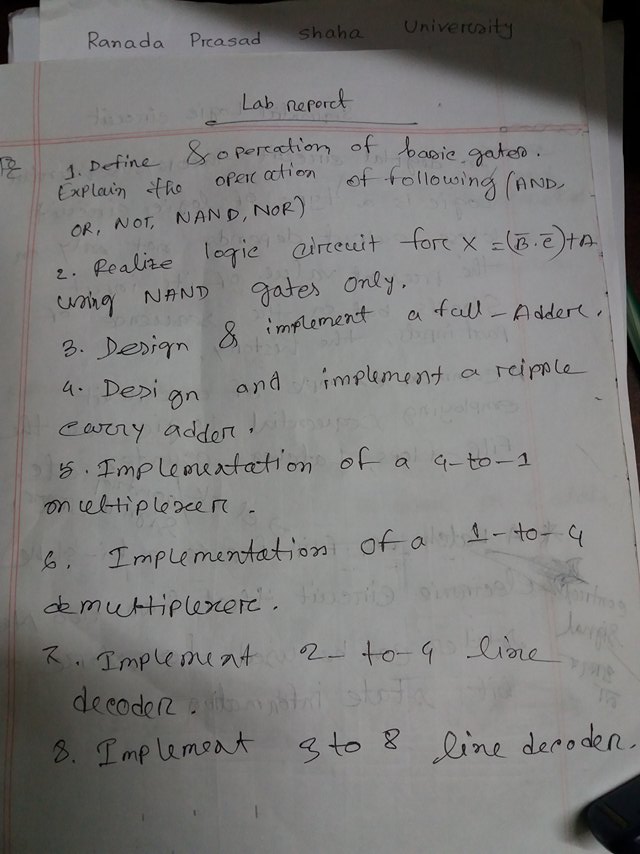 Ranada Prcasad Shaha Univercsity
Lab reporct
1. Define & opercation of basic gates.
Explain the opercation of following (AND,
OR, NOT, NAND, NOR)
2. Realize logic circuit forc X = (B̅·C̅)+A
using NAND gates only.
3. Design & implement a full-Adderc.
4. Design and implement a rcipple
carry adderc.
5. Implementation of a 4-to-1
multiplexerc.
6. Implementation of a 1-to-4
demultiplexerc.
7. Implement 2-to-4 line
decoderc.
8. Implement 3 to 8 line decoderc.